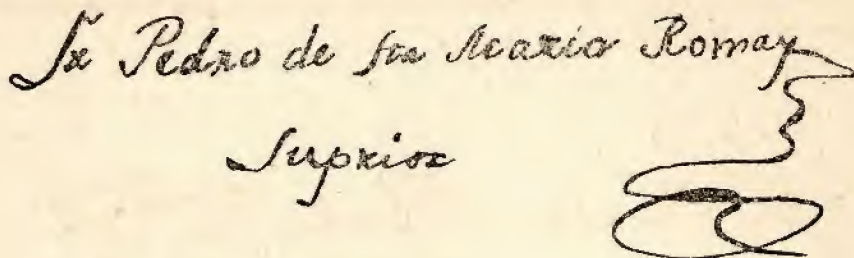 Fr Pedro de sta Maria Romay
Suprior